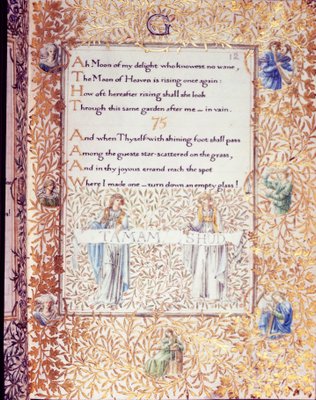 G
12
Ah Moon of my delight who knowest no wane,
The Moon of Heaven is rising once again:
How oft hereafter rising shall she look
Through this same garden after me — in vain.
75
And when Thyself with shining foot shall pass
Among the guests star-scattered on the grass,
And in thy joyous errand reach the spot
Where I made one — turn down an empty glass!
TAMAM SHUD